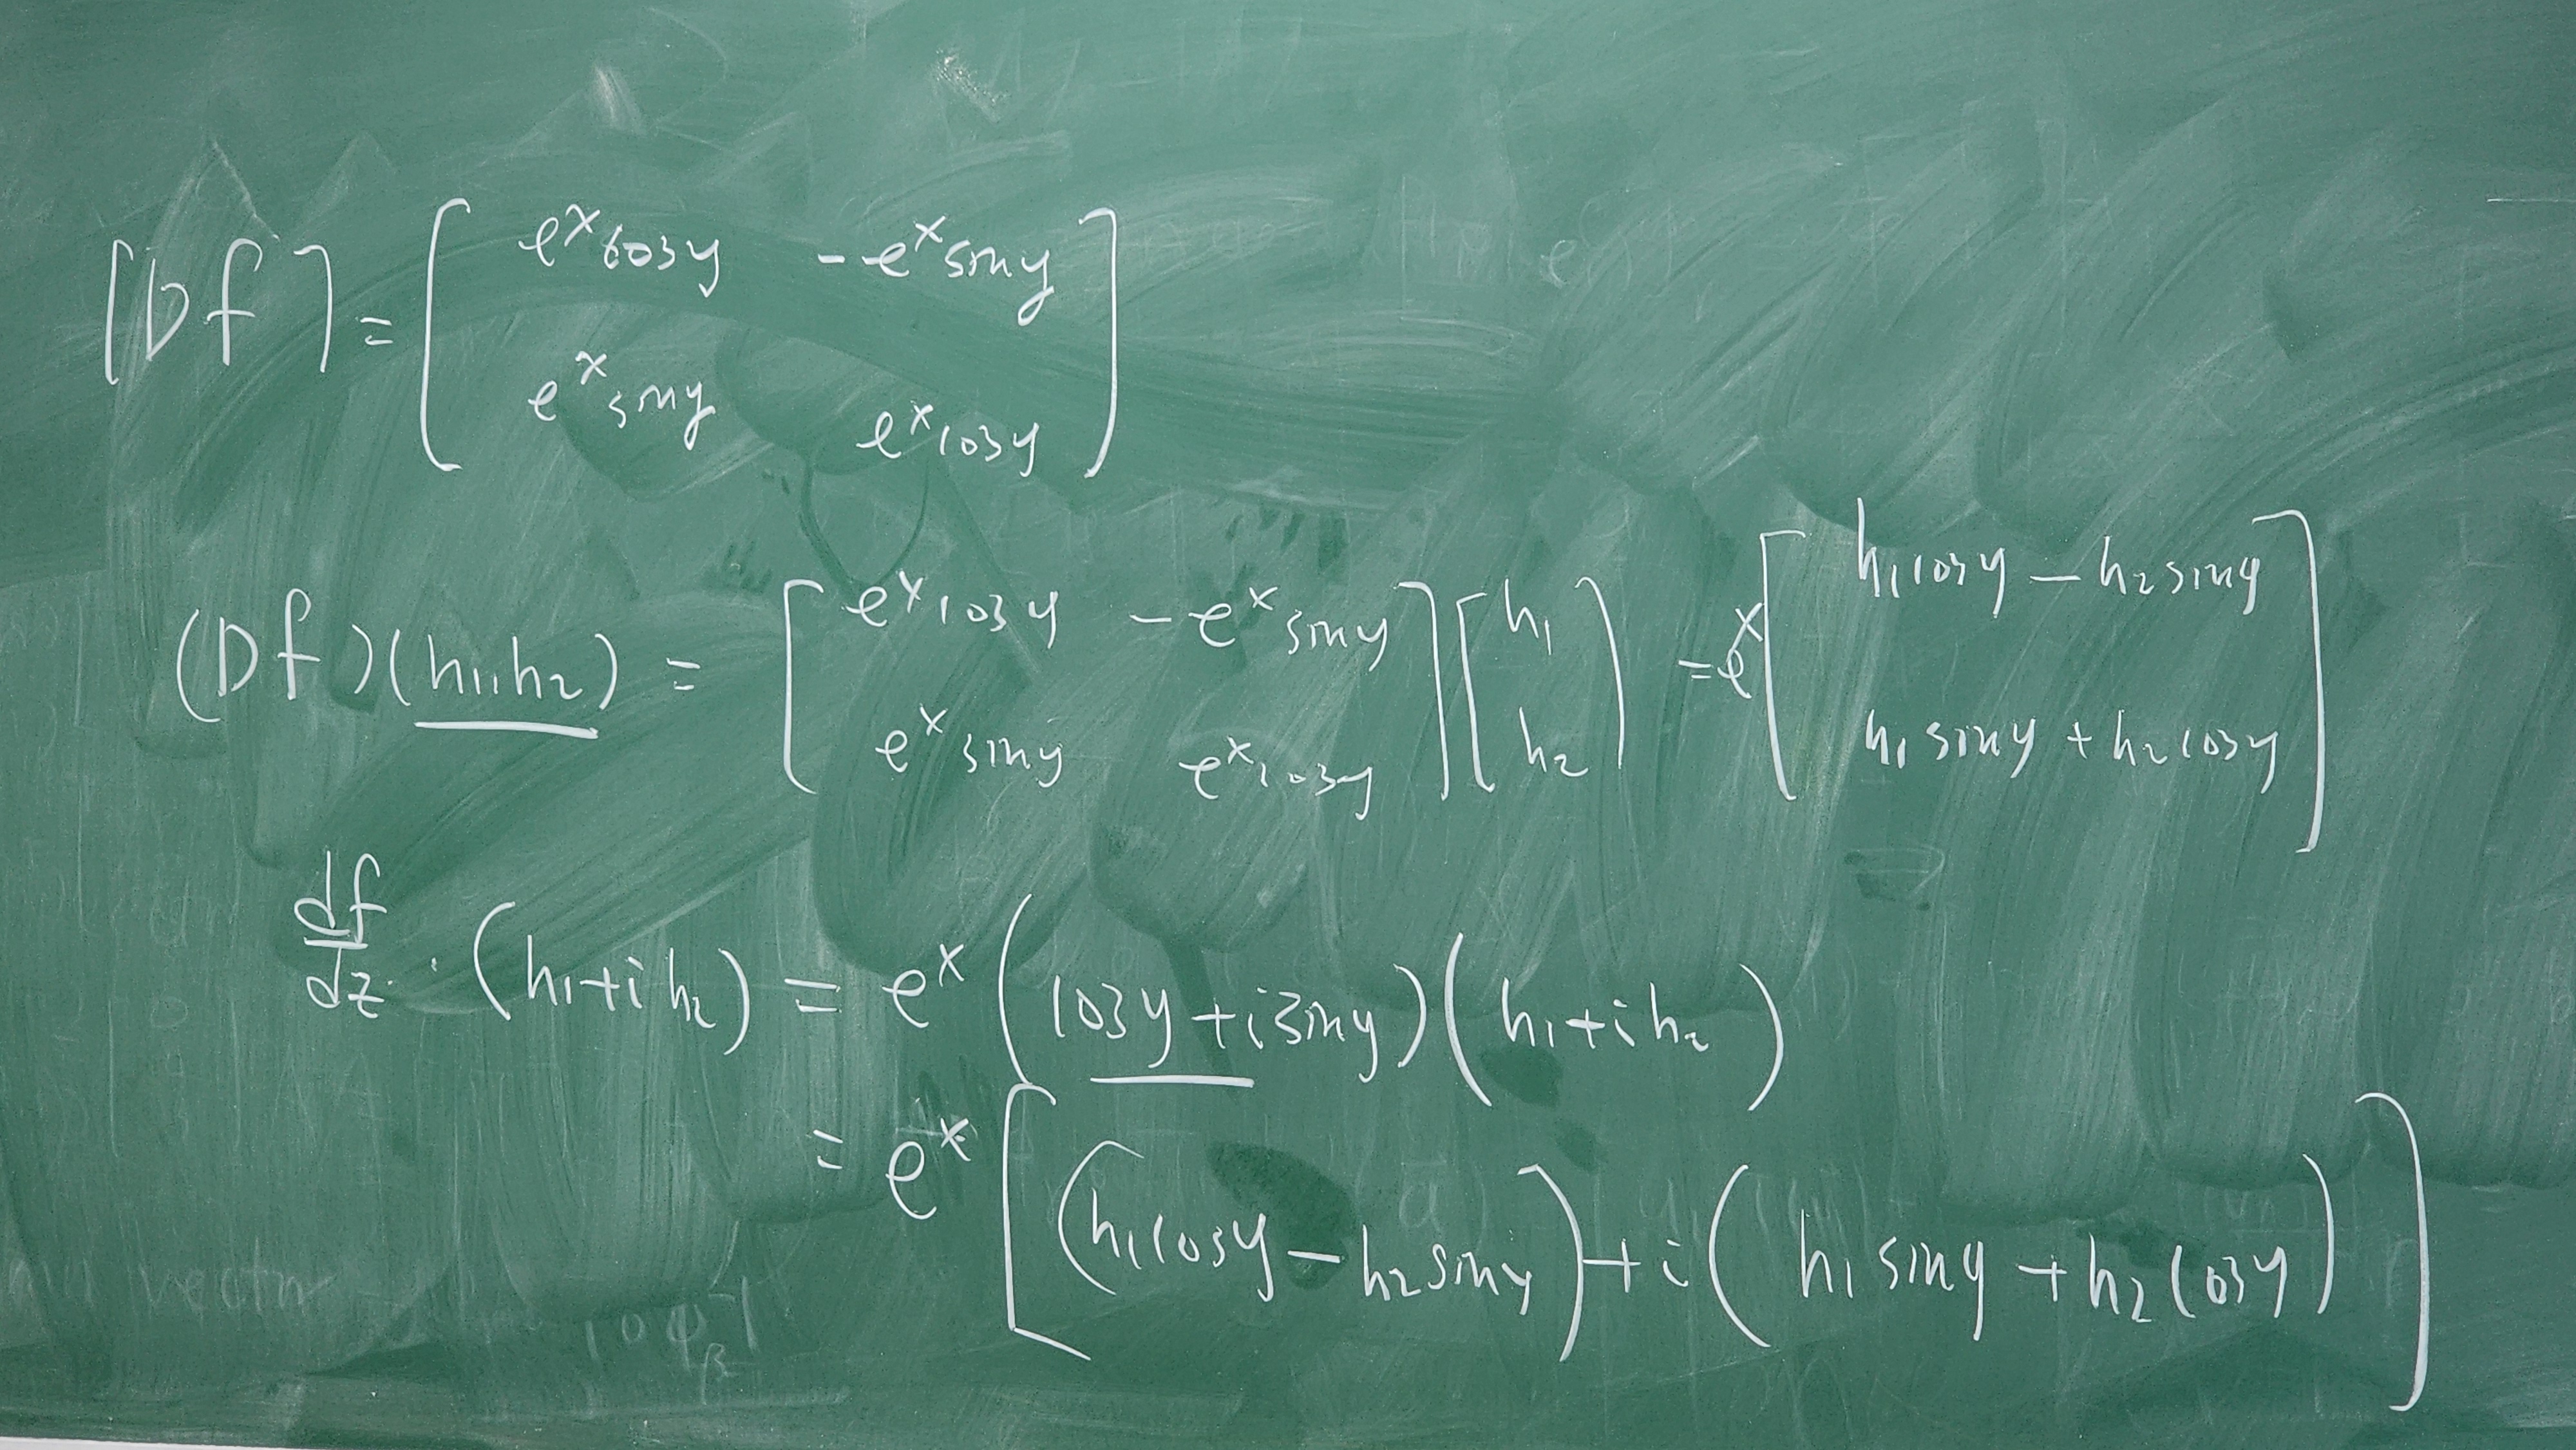 [Df] = [ e^x cos y   -e^x sin y
e^x sin y   e^x cos y ]
(Df)(h₁,h₂) = [ e^x cos y   -e^x sin y ] [ h₁ ] = e^x [ h₁ cos y - h₂ sin y ]
[ e^x sin y   e^x cos y ] [ h₂ ]   [ h₁ sin y + h₂ cos y ]
df/dz · (h₁+i h₂) = e^x (cos y + i sin y)(h₁+i h₂)
= e^x [(h₁ cos y - h₂ sin y) + i(h₁ sin y + h₂ cos y)]
vector